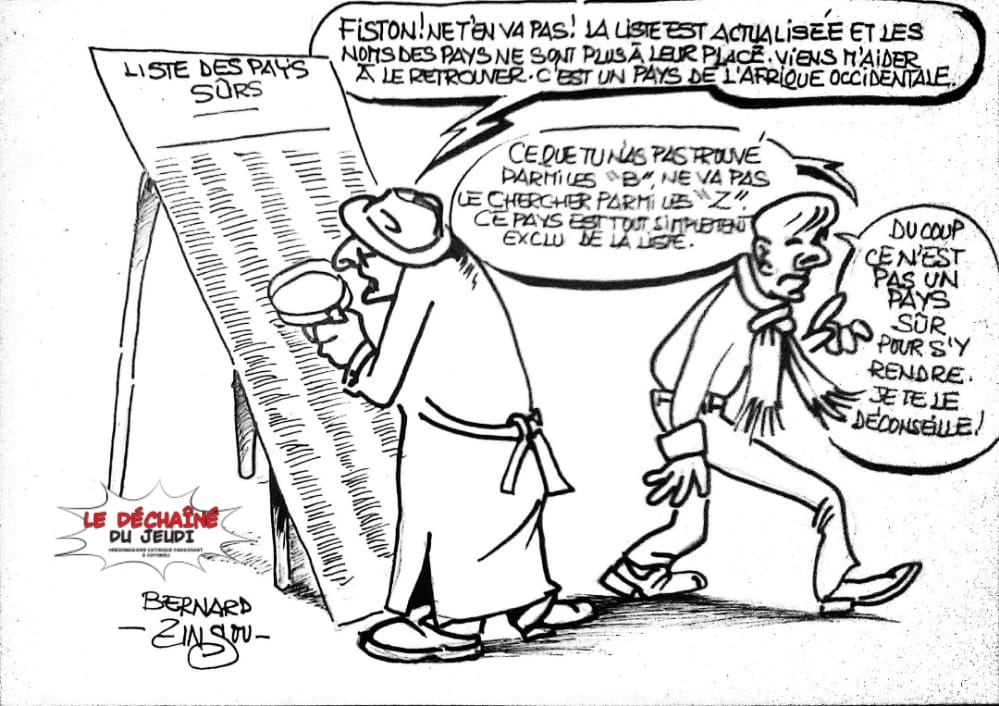 FISTON! NE T'EN VA PAS! LA LISTE EST ACTUALISÉE ET LES
NOMS DES PAYS NE SONT PLUS À LEUR PLACE. VIENS M'AIDER
À LE RETROUVER. C'EST UN PAYS DE L'AFRIQUE OCCIDENTALE.
LISTE DES PAYS
SÛRS
CE QUE TU N'AS PAS TROUVÉ
PARMI LES "B", NE VA PAS
LE CHERCHER PARMI LES "Z".
CE PAYS EST TOUT SIMPLEMENT
EXCLU DE LA LISTE.
DU COUP
CE N'EST
PAS UN
PAYS
SÛR
POUR S'Y
RENDRE.
JE TE LE
DÉCONSEILLE!
LE DÉCHAÎNÉ
DU JEUDI
HEBDOMADAIRE SATIRIQUE PARAISSANT
À COTONOU
BERNARD
-ZINSOU-